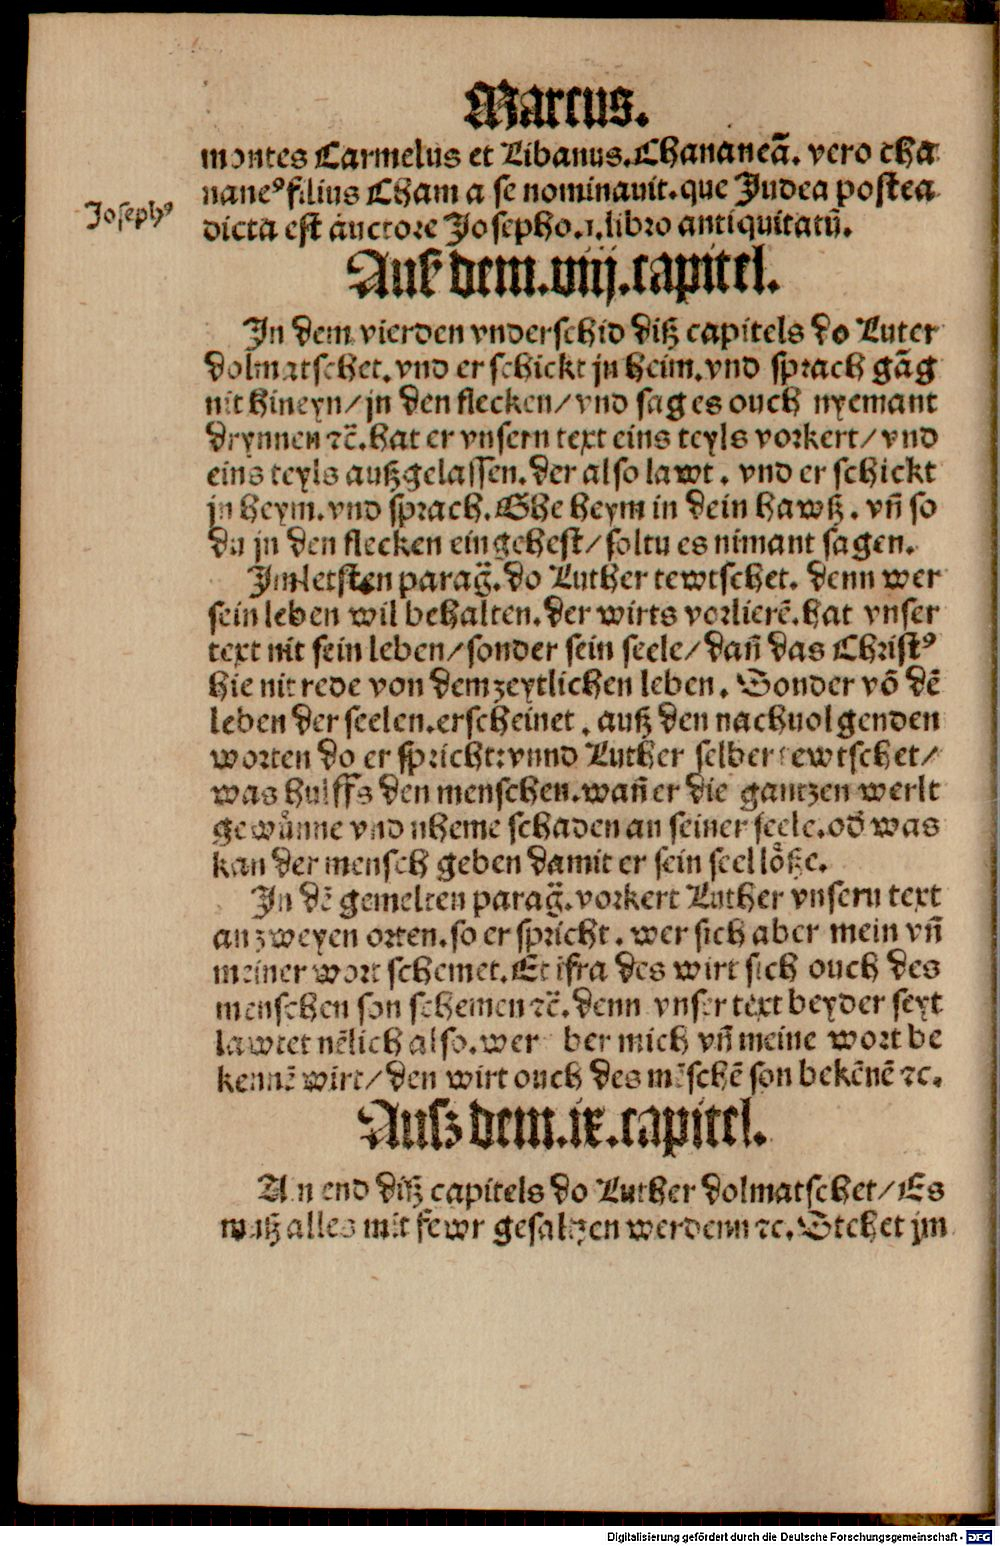 Marcus.
montes Carmelus et Libanus. Chananeā. vero cha
naneꝰ filius Cham a se nominauit. que Judea postea
Josephꝰ
dicta est auctore Josepho. 1. libro antiquitatū.
Auß dem. viij. capitel.
In dem vierden vnderschid diß capitels do Luter
dolmatschet. vnd er schickt jn heim. vnd sprach gāg
nit hineyn / jn den flecken / vnd sag es ouch nyemant
drynnen ⁊c̄. hat er vnsern text eins teyls vorkert / vnd
eins teyls außgelassen. der also lawt. vnd er schickt
jn heym. vnd sprach. Ghe heym in dein hawß. vn̄ so
du jn den flecken eingehest / soltu es nimant sagen.
Im letsten parag̃. do Luther tewtschet. denn wer
sein leben wil behalten. der wirts vorlierē. hat vnser
text nit sein leben / sonder sein seele / dan̄ das Christꝰ
hie nit rede von dem zeytlichen leben. Sonder vō dē
leben der seelen. erscheinet. auß den nachuolgenden
worten do er spricht: vnnd Luther selber tewtschet /
was hulffs den menschen. wan̄ er die gantzen werlt
gewünne vnd nheme schaden an seiner seele. od̄ was
kan der mensch geben damit er sein seel lößze.
In dē gemelten parag̃. vorkert Luther vnsern text
an zweyen orten. so er spricht. wer sich aber mein vn̄
meiner wort schemet. Et ifra des wirt sich ouch des
menschen son schemen ⁊c̄. denn vnser text beyder seyt
lawtet nēlich also. wer ber mich vn̄ meine wort be
kennē wirt / den wirt ouch des mēschē son bekēnē ⁊c.
Ausz dem. ix. capitel.
An end diß capitels do Luther dolmatschet / Es
muß alles mit fewr gesaltzen werdenn ⁊c. Stehet jm
Digitalisierung gefördert durch die Deutsche Forschungsgemeinschaft - DFG